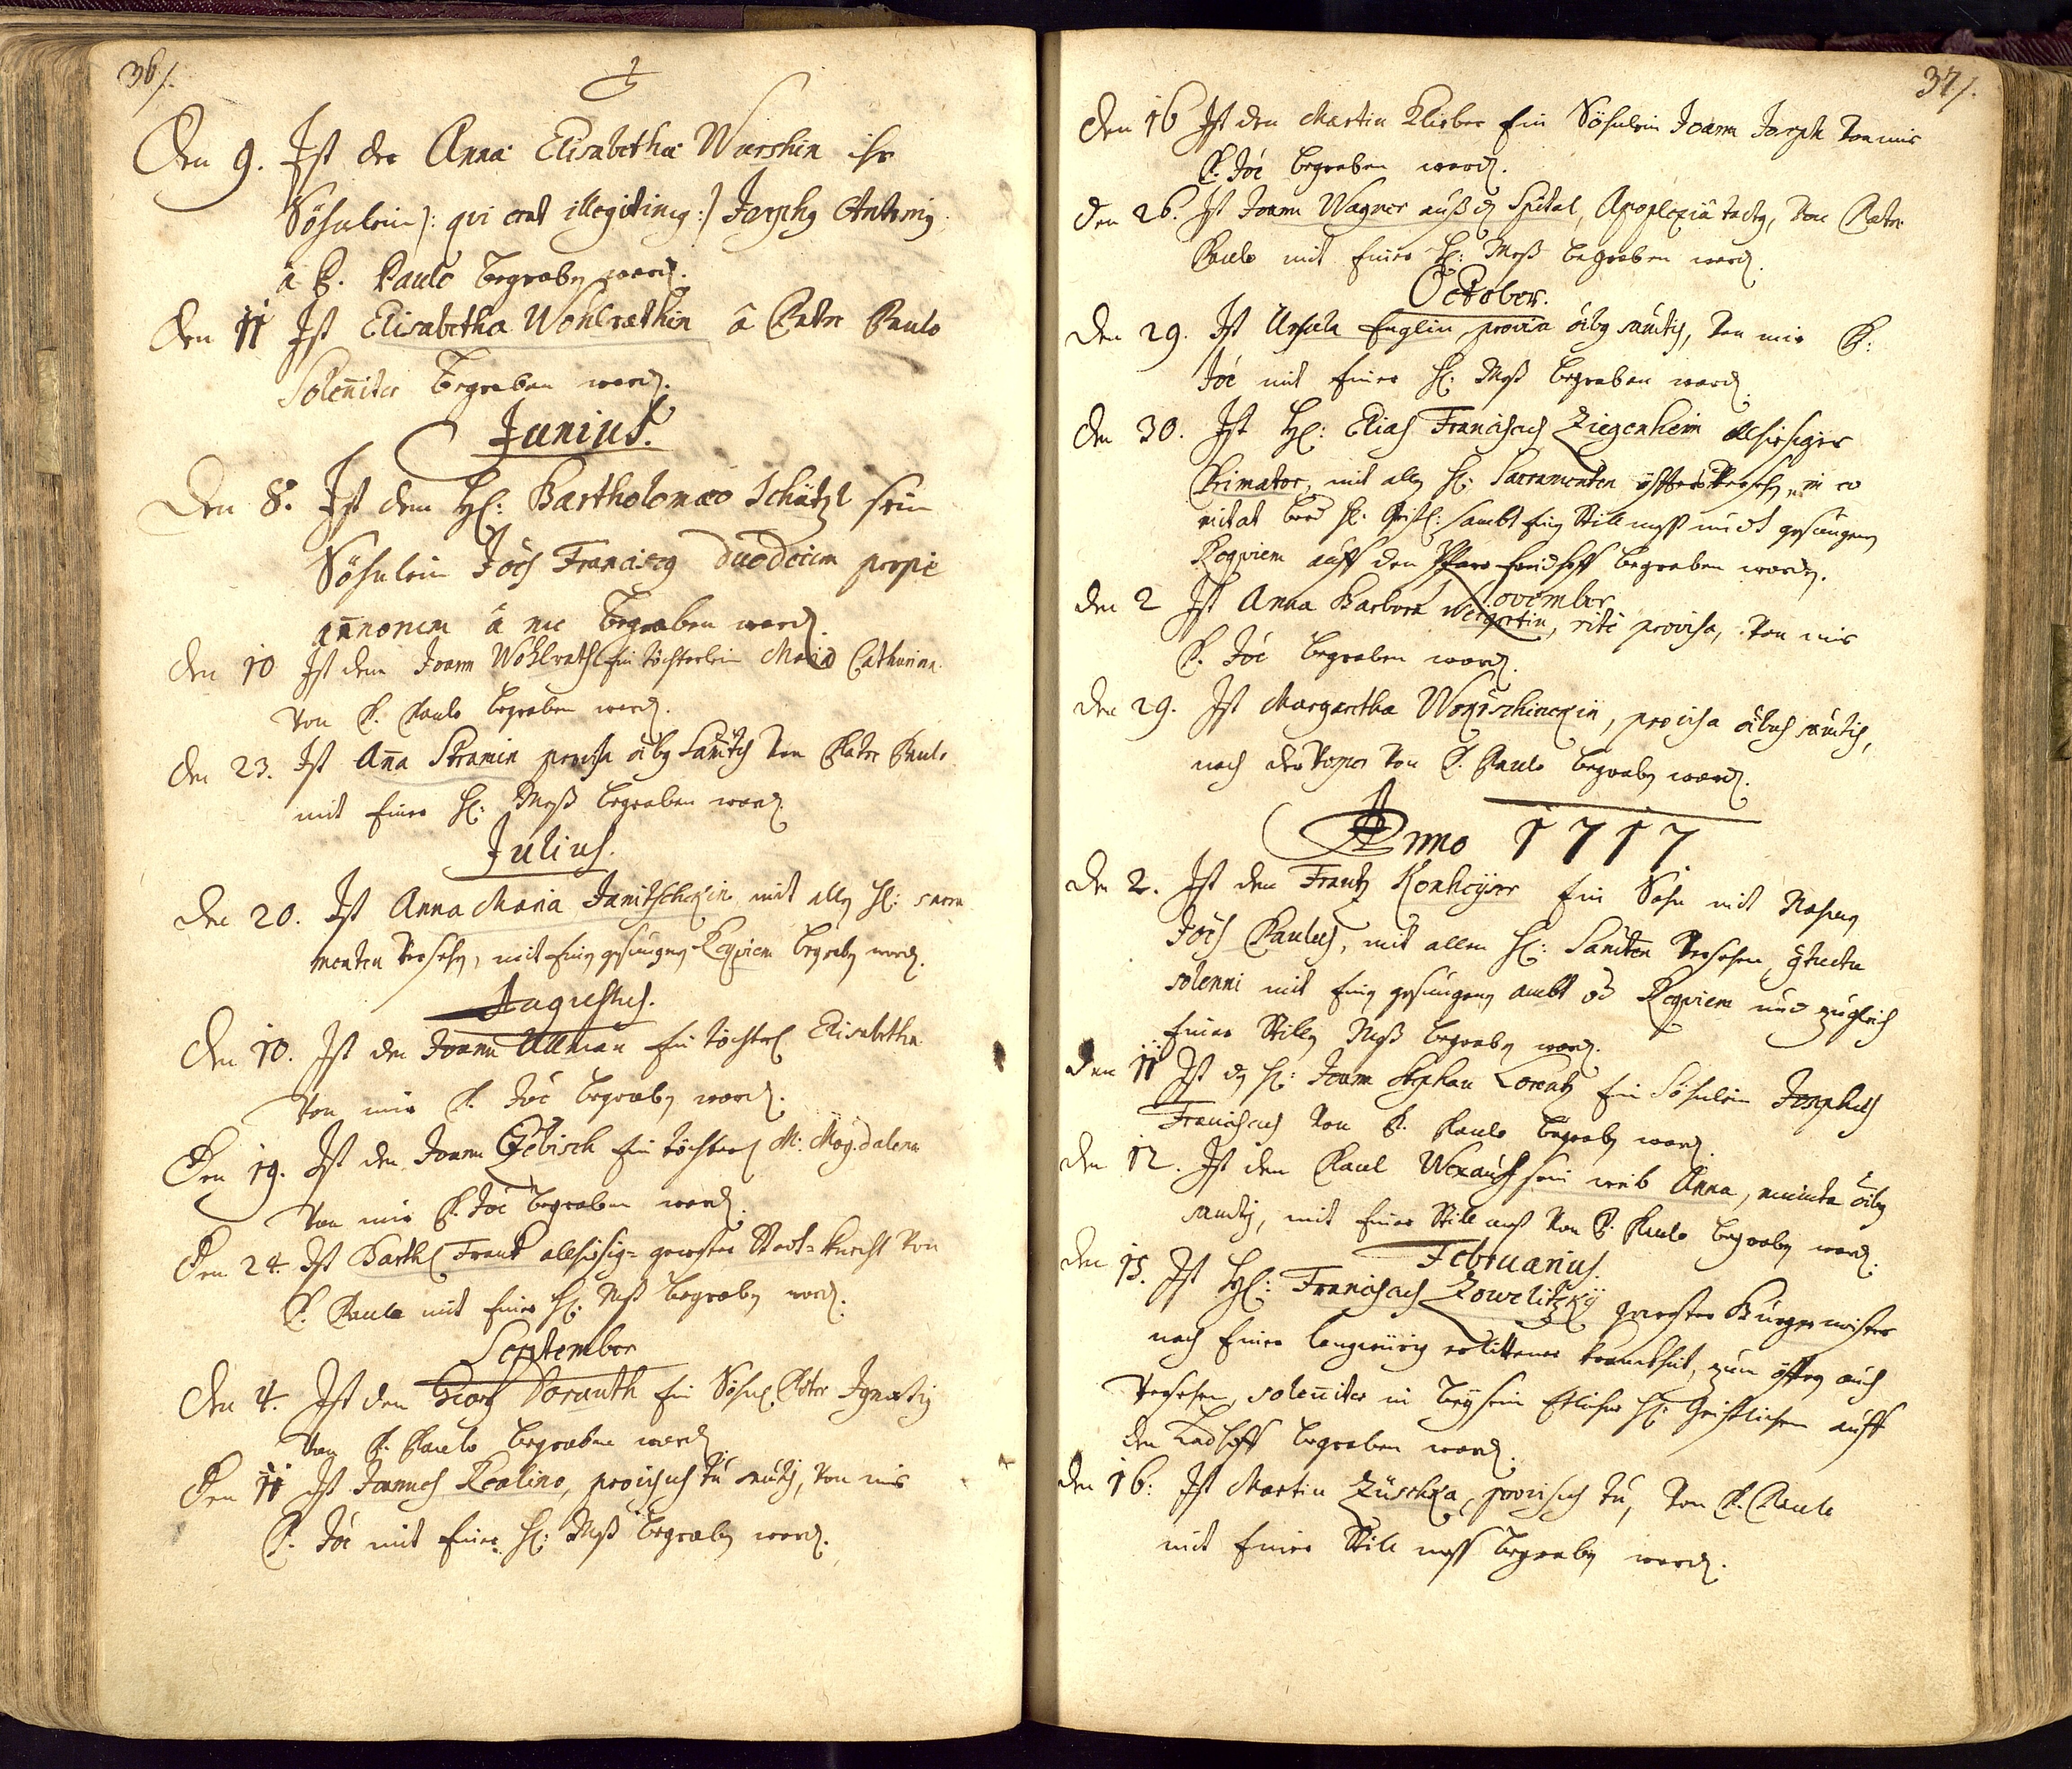 36/.
Den 9. Ist der Anna Elisabetha Wurshin ihr
Söhnlein /: qui erat illegitimg :/ Josephg Antonig
â P. Paulo begraben word.
Den 11 Ist Elisabetha Wohlrathin â Patre Paulo
Soleniter begraben word.
Junius.
Den 8. Ist dem Hl: Bartholomæo Schätzl sein
Söhnlein Joës Franciscg duodecim prope
annorum â me begraben word.
den 10 Ist dem Joann Wohlrath ein töchterlein Maria Catharina
von P. Paulo begraben word.
den 23. Ist Aña Stramin provisa oibg Santis von Patre Paulo
mit einer Hl: Meß begraben word.
Julius.
Den 20. Ist Anna Maria Janitschkin mit allg Hl: sacra
menten versehg, mit eing gesungeng Requiem begrabg word.
Augustus.
Den 10. Ist den Joann Ullman ein töchterl Elisabetha
von mir P. Joë begrabg word.
Den 19. Ist den Joann Göbisch ein töchterl M: Magdalena
von mir P. Joë begraben word.
Den 24. Ist Barthl Frank allhisig= gewester Stadt= knecht von
P. Paulo mit einer Hl: Meß begrabg word.
September
Den 4. Ist den Georg Soranth ein Söhnl Peter Ignatig
von P. Paulo begraben word
Den 11 Ist Joannes Realino, provisus von mir
P. Joë mit einer Hl: Meß begrabg word.
37/.
Den 16 Ist den Martin Klieber ein Söhnlein Joann Joseph von mir
P. Joë begraben word.
Den 26. Ist Joann Wagner auß dg Spital, Apoplexiâ tactg, von Patre
Paulo mit einer Hl: Meß begraben word.
October.
Den 29. Ist Ursula Englin provisa oibg santis, von mir P:
Joë mit einer Hl: Meß begraben word
Den 30. Ist Hl: Elias Franciscus Ziegenheim allhiesiger
Primator, mit allg Hl: Sacramenten öffters versehg, in co
mitat Hl. Geistl: sambt eing Still meß undt gesungeng
Requiem auff den Pfarr freidhoff begraben worden.
November
den 2 Ist Anna Barbara Weigertin, ritè provisa, von mir
P. Joë begraben word.
Den 29. Ist Margaretha Woxischinckin, provisa oibus santis,
nach der Vesper von P. Paulo begrabg word.
Anno 1717
Den 2. Ist den Frantz Konheyser ein Sohn mit Nahmen
Joës Paulus, mit allen Hl: Sancten versehen,
solenni mit eing gesungeng ambt Requiem und zugleich
einer Stillg Meß begrabg word.
Den 11 Ist dg H: Joann Stephan Lorentz ein Söhnlein Josephus
Franciscus von P. Paulo begrabg word.
Den 12. Ist dem Paul Wexausch sein weib Anna, munita oibg
santis, mit einer Still meß von P. Paulo begrabg word.
Februarius.
Den 15. Ist Hl: Franciscus Zowelitzky gewester Burgermeister
nach einer langwürig erlittener kranckheit, zum öfftern auch
versehen, soleniter in beysein etlicher Hl: Geistlichen auff
den Kirchhoff begraben word.
den 16: Ist Martin Zuschka, provisus von P. Paulo
mit einer Still meß begrabg word.